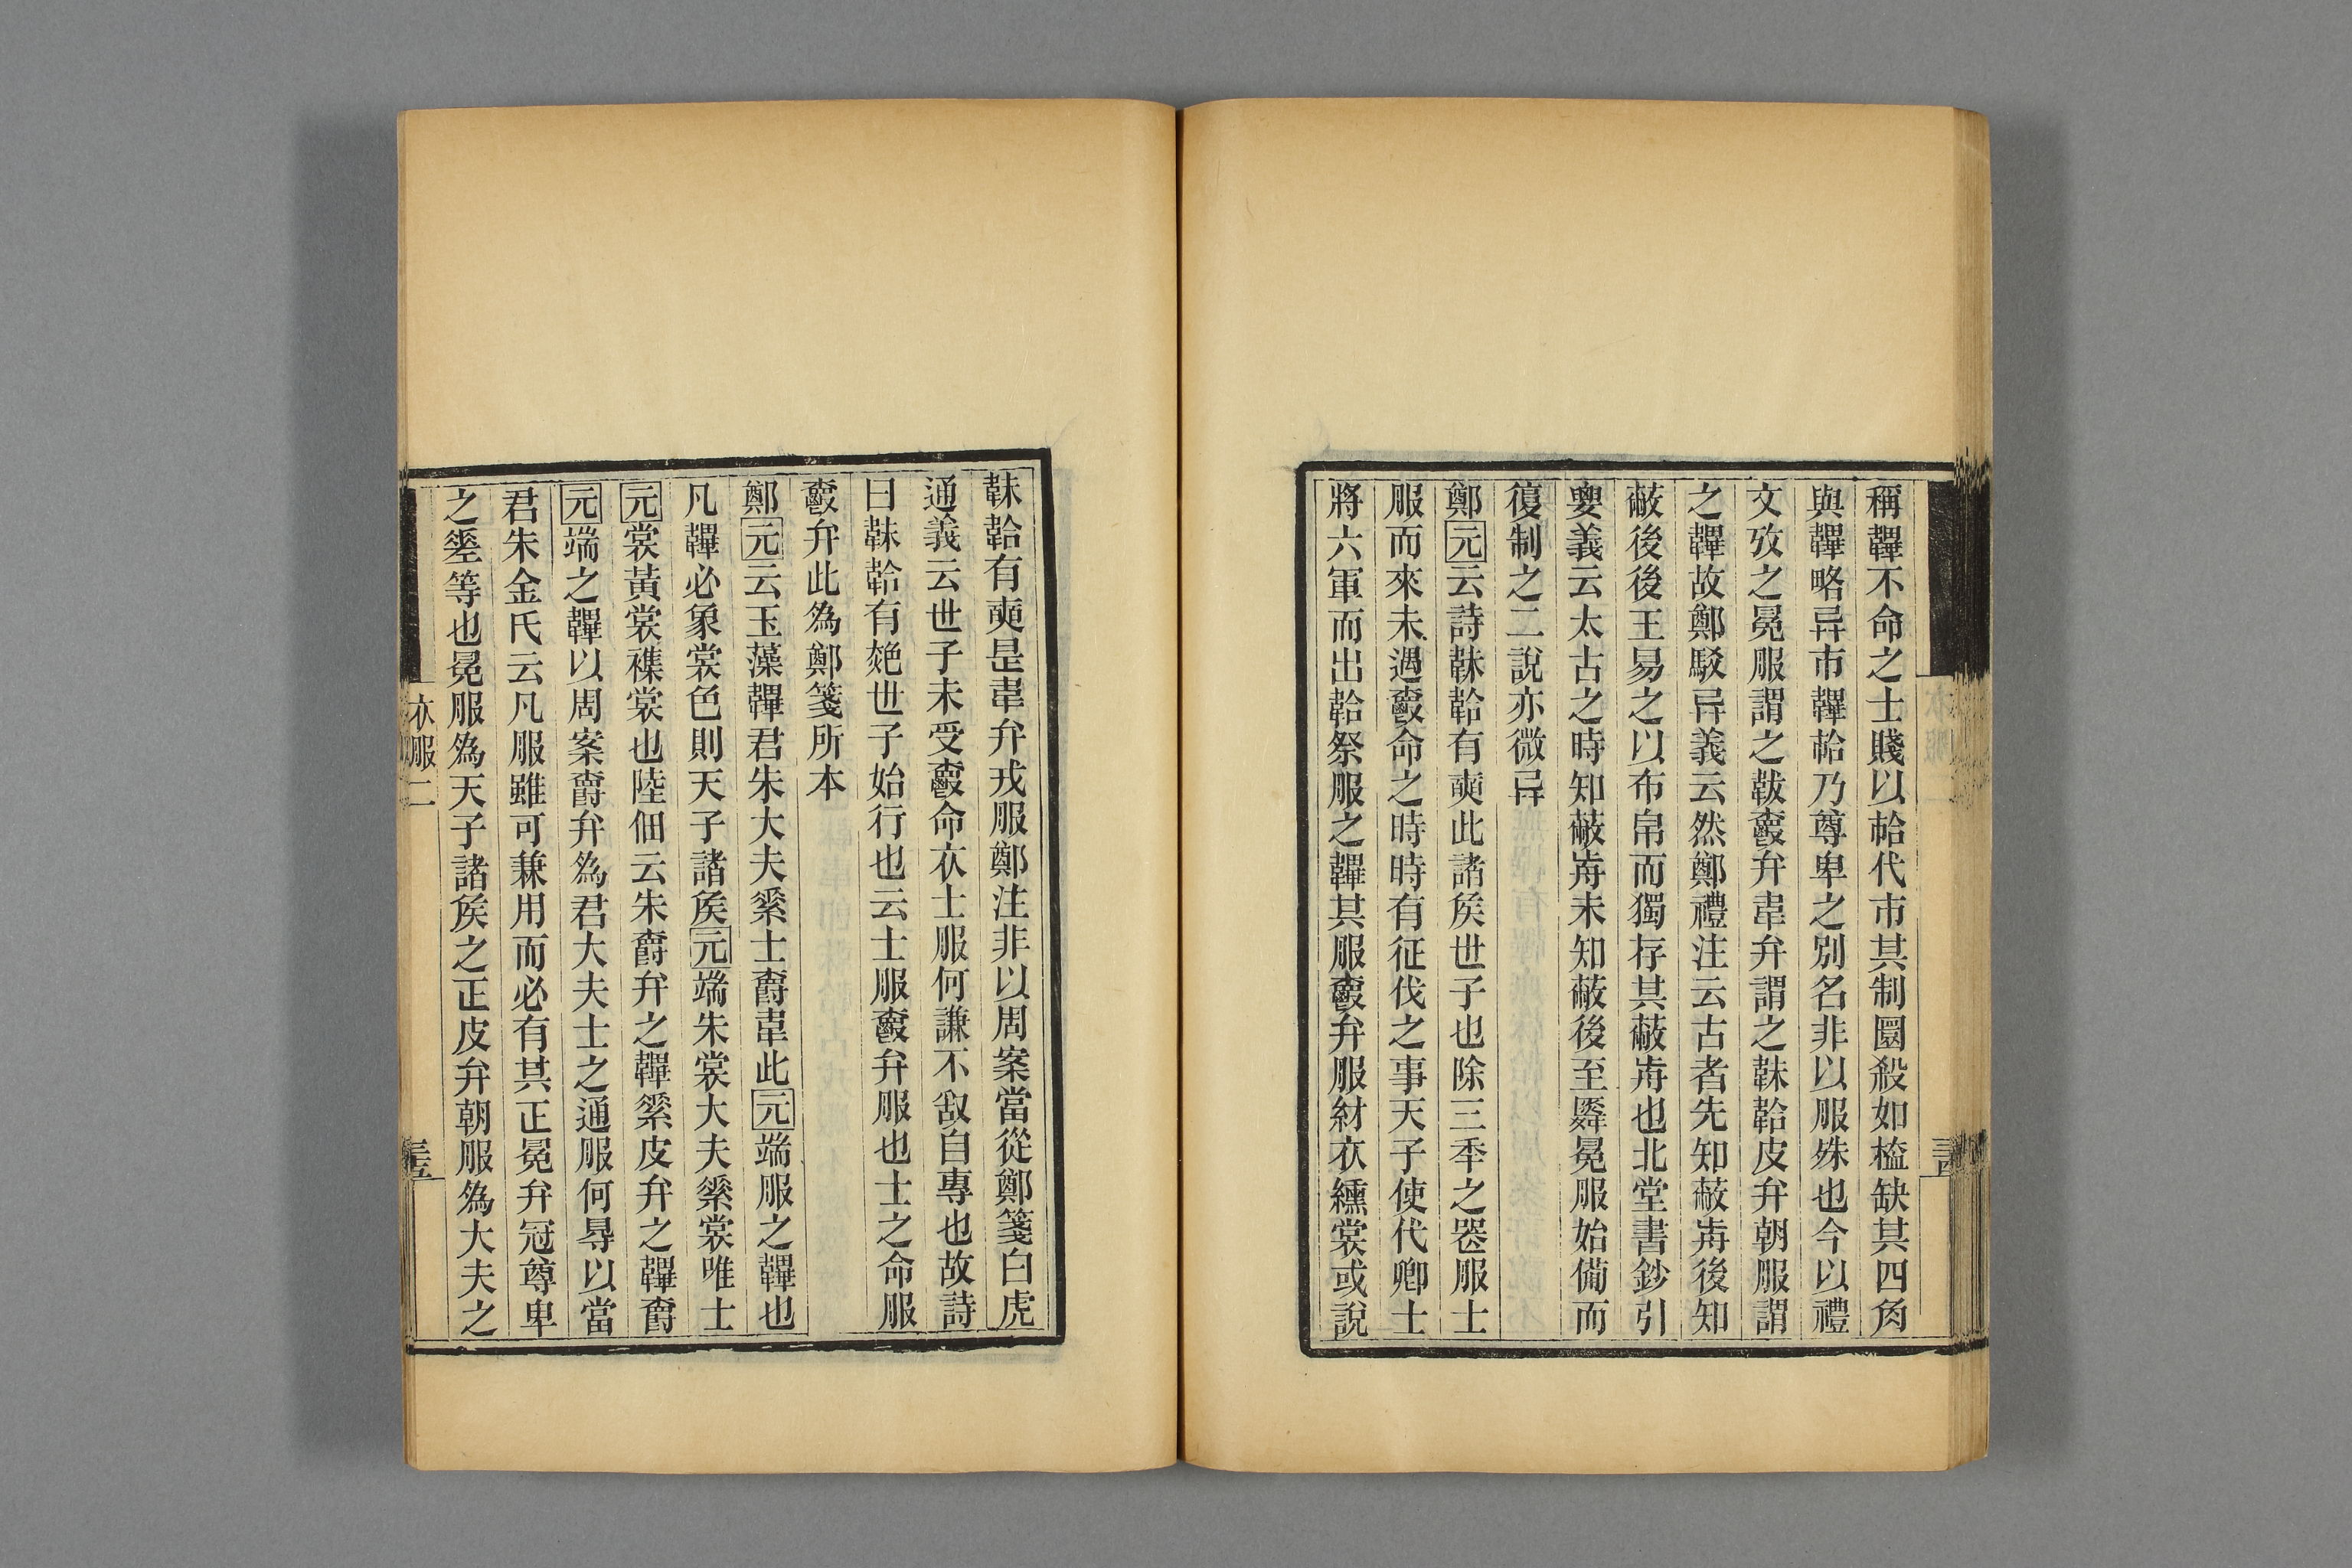 稱韠不命之士賤以韐代巿其制圜殺如榼缺其四角
與韠略异巿韠韐乃尊卑之別名非以服殊也今以禮
文攷之冕服謂之韍爵弁韋弁謂之韎韐皮弁朝服謂
之韠故鄭駁异義云然鄭禮注云古者先知蔽歬後知
蔽後後王易之以布帛而獨存其蔽歬也北堂書鈔引
要義云太古之時知蔽歬未知蔽後至冕服始備而
復制之二說亦微异
鄭元云詩韎韐有奭此諸矦世子也除三秊之喪服士
服而來未遇爵命之時時有征伐之事天子使代卿士
將六軍而出韐祭服之韠其服爵弁服紂衣纁裳或說
韎韐有奭是韋弁戎服鄭注非以周案當從鄭箋白虎
通義云世子未受爵命衣士服何謙不敢自專也故詩
曰韎韐有赩世子始行也云士服爵弁服也士之命服
爵弁此為鄭箋所本
鄭元云玉藻韠君朱大夫素士爵韋此元端服之韠也
凡韠必象裳色則天子諸矦元端朱裳大夫素裳唯士
元裳黃裳襍裳也陸佃云朱爵弁之韠素皮弁之韠爵
元端之韠以周案爵弁為君大夫士之通服何㝵以當
君朱金氏云凡服雖可兼用而必有其正冕弁冠尊卑
之等也冕服為天子諸矦之正皮弁朝服為大夫之
衣服二
三五